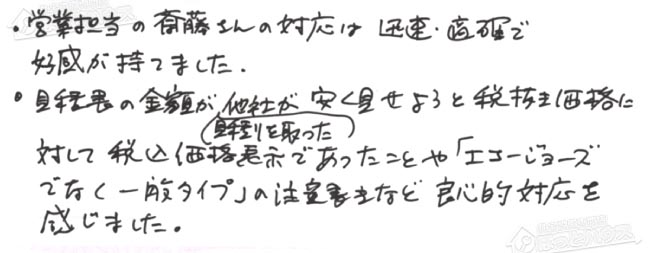 ・営業担当の斎藤さんの対応は迅速・適確で
好感が持てました.
・見積表の金額が他社が安く見せようと税抜き価格に
(見積りを取った)
対して税込価格表示であったことや「エコージョーズ
でなく一般タイプ」の注意書きなど良心的対応を
感じました。